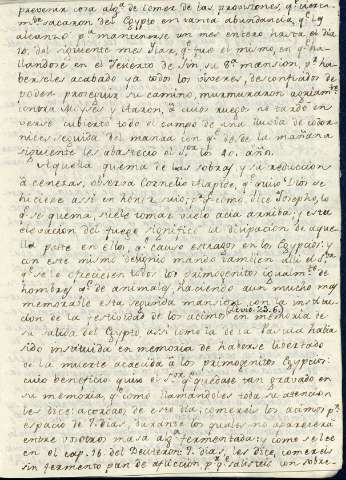 prevenir cosa algª de comer de las provisiones, qᵉ
sacaron del Egypto en tanta abundancia, qᵉ
alcanzo pª mantenerse un mes entero hasta el dia
15. del siguiente mes Jiar, qᵉ fue el mismo, en qᵉ ha-
llandose en el Desierto de Sin su 8ª mansion, pʳ ha-
berseles acabado ya todos los viveres, desconfiados de
poder proseguir su camino, murmuraron
contra Moyses y Aaron, a cuios ruegos no tardó en
verse cubierto todo el campo de una lluvia de codor-
nices seguida del manaa con qᵉ desde la mañana
siguiente les abasteció el Sᵒʳ los 40. años.
Aquella quema de las sobras y su reduccion
à cenizas, observa Cornelio Alapide, qᵉ quiso Dios se
hiciese assi en honor suio; pʳ qᵉ como dice Josepho, lo
qᵉ se quema, suele tomar buelo acia arriba: y esta
elevacion del fuego significó la ocupacion de aque-
lla peste en ellos, qᵉ causó estragos en los Egypcios: y
con este mismo designio mandó tambien alli el Sᵒʳ
qᵉ se le ofreciesen todos los primogenitos
hombres qᵉ de animales, haciendo aun mucho mas
memorable esta segunda mansion con la institu-
cion de la festividad de los acimos Levit. 23. 6. en memoria de
su salida del Egypto assi como la de la Pascua habia
sido instituida en memoria de haberse libertado
de la muerte acaecida à los primogenitos Egypcios:
cuio beneficio quiso el Sᵒʳ qᵉ quedase tan gravado en
su memoria, qᵉ como llamandoles toda su atencion
les dice: acordaos, de este dia, comereis los acimos pʳ
espacio de 7. dias, durante los quales no aparecerá
entre vosotros masa algª fermentada: y como se lee
en el cap. 16. del Deuteron. 7. dias, les dice, comereis
sin fermento pan de afliccion pʳ qᵉ salisteis con sobre-